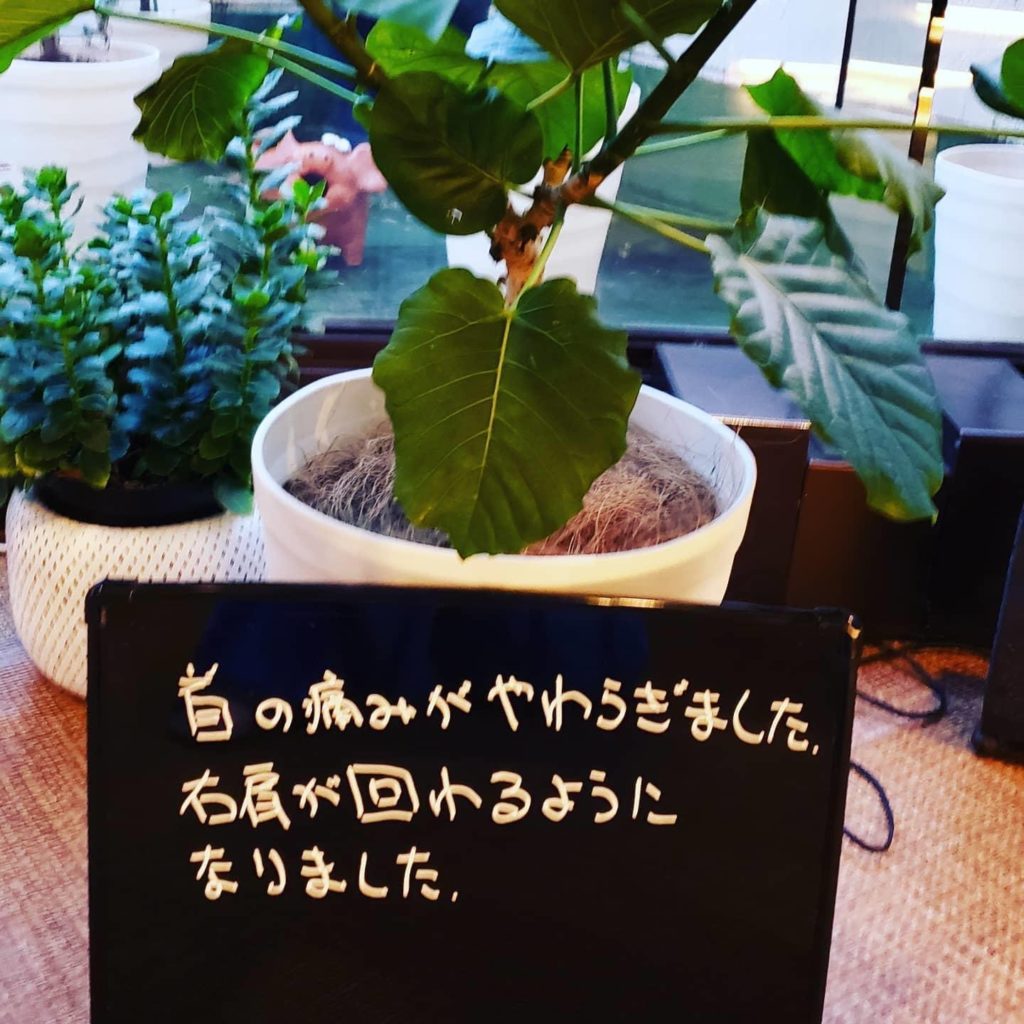 首の痛みがやわらぎました.
右肩が回わるように
なりました.